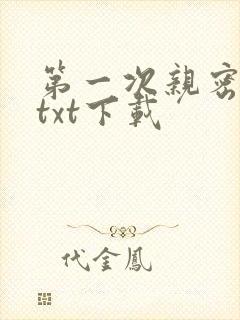 第一次親密
txt下載
代金鳳